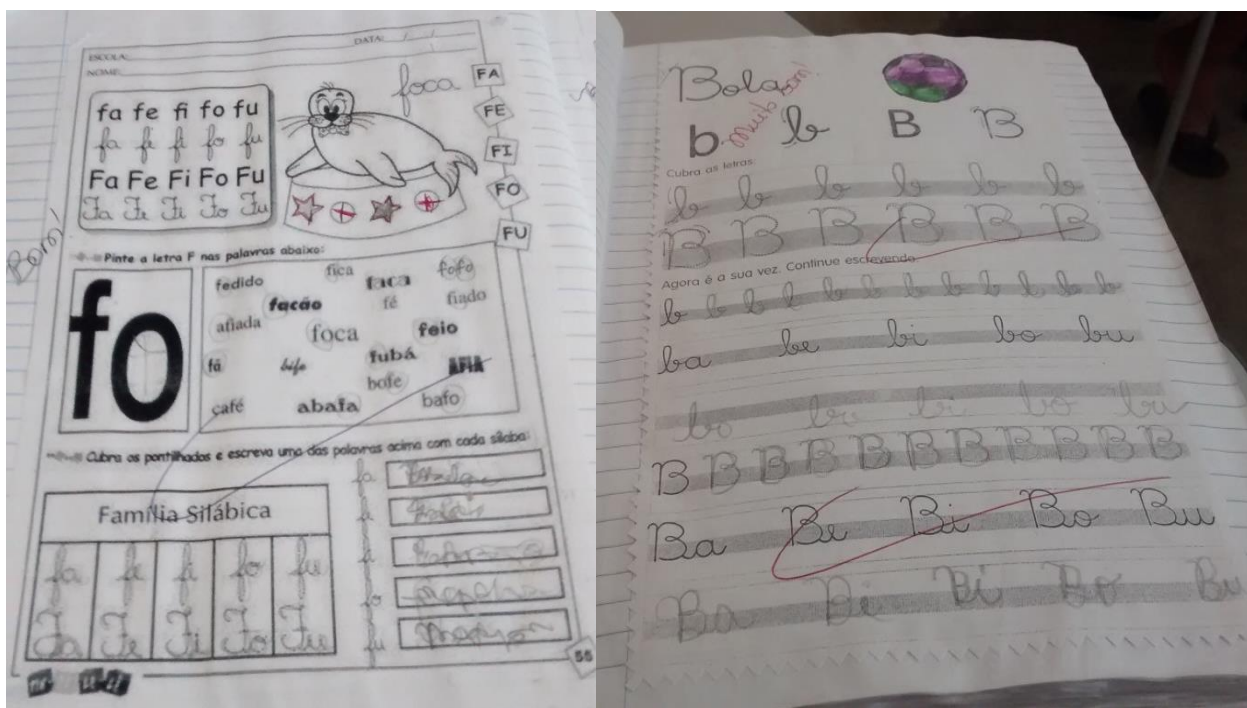 ESCOLA:
DATA: / /
NOME:
foca
FA
FE
FI
FO
FU
fa fe fi fo fu
fa fe fi fo fu
Fa Fe Fi Fo Fu
Fa Fe Fi Fo Fu
Bom!
Pinte a letra F nas palavras abaixo:
fo
fedido fica faca fofo
facão fé fiado
afiada foca feio
fã bife fubá AFIA
bofe
café abafa bafo
Cubra os pontilhados e escreva uma das palavras acima com cada sílaba:
Família Silábica
fa fe fi fo fu
Fa Fe Fi Fo Fu
fa
fe
fi
fo
fu
55
Bola
Muito bom!
b b B B
Cubra as letras.
b b b b b b
B B B B B B
Agora é a sua vez. Continue escrevendo.
b b b b b b b b b b b b
ba be bi bo bu
B B B B B B B B B B B
Ba Be Bi Bo Bu
Ba Be Bi Bo Bu